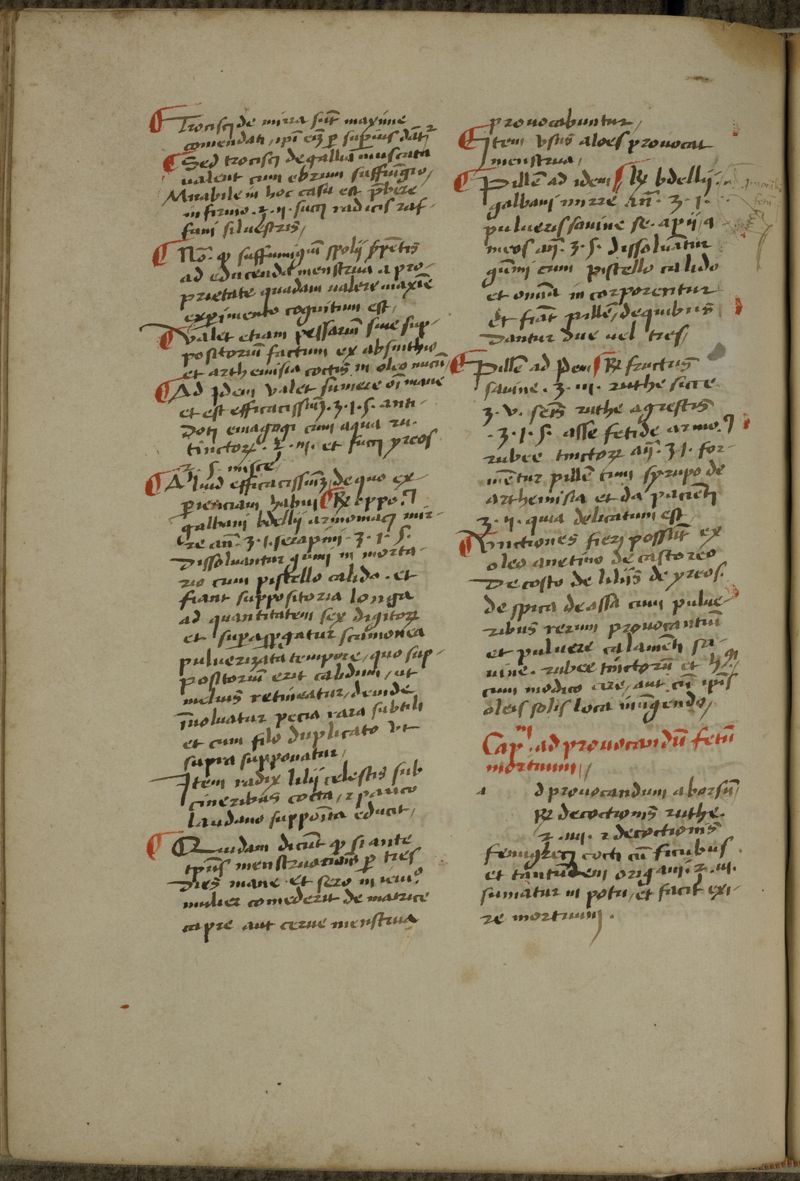 Trocisci de mirra sūt maxime
comendati,
Sed trocisci de gallia muscata
ualent cum ebrium suffumigio,
Mirabile in hoc casu est p̄bere
infirmo .ʒ.ij. succi radicis raf-
fani siluestris,
No. ꝙ suffumigiū spolij sp̄etis
ad educenda menstrua a pro-
prietate quadam ualere maxīe
experimento cognitum est,
Valet etiam pessariū siue sup-
positoriū factum ex absinthio
et arthemisia coctis in oleo
Ad idem valet sumere oī mane
et est efficacissimū .ʒ.i.s. anti-
doti emagogi cum aqua ru.
tinctoꝝ .ʒ.iij. et succi yreos
ʒ.s. misce,
Aliud efficacissimū, de quo ex-
perienciam habui ℞ oppo.
galbani bdellij armoniaci mir-
re an̄.ʒ.i. serapini .ʒ.i.s.
Dissoluantur gumi in morta-
rio cum pistello calido. et
fiant suppositoria longa
ad quantitatem sex digitoꝝ
et supaspgatur scamonea
puluerizata tempore, quo sup-
positoriū erit calidum, ut
melius retineatur, deinde
inuoluatur pecia rara subtili
et cum filo duplicato vt
supra supponatur,
Item radix lilij celestis sub
cineribus cocta, ⁊ pauco
laudano supposita educit,
Quidam dicūt ꝙ si ante
tp̄us menstruationis ꝑ tres
dies mane et sero in
mulier comederit de matrice
capre aut cerue menstrua
prouocabuntur,
Item vsus aloes prouocat
menstrua,
Pillē ad idem ℞ bdellij.
galbani mirre an̄.ʒ.i.
pulueris sauine se. apij, a
meos an̄.ʒ.s. dissoluātur
gūmi cum pistello calido
et omīa incorporentur
et fiāt pillē, de quibus
dantur due uel tres,
Pillē ad idem ℞ fructus
sauine .ʒ.iij. ruthe sicce
ʒ.v. sem̄s ruthe agrestis
.ʒ.i.s. asse fetide armo.
rubee tinctoꝝ an̄.ʒ.i. for-
mētur pillē cum syrupo de
arthemisia et da pacienti
ʒ.ij. quia delicatum est
Vnctiones fieri possūt ex
oleo anetino de castoreo
de costo de lilijs de yreos.
de spica de assa cum pulue-
ribus rerum prouocantiū
et puluere calamēti sa-
uine. rubee tinctorū et
cum modico cere, aut cū ip̄is
oleis solis loca inūgendo,
Capm. ad prouocandū fetū
mortuum,
a d prouocandum aborsū,
℞ decoctionis ruthe.
ʒ.iiij. ⁊ decoctionis
fenugreci cocti cū ficubus
et tantūdem origani ʒ.iij.
sumatur in potu, et facit exi-
re mortuum.